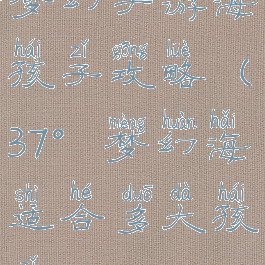 游海
hái zǐ gōng lüè
孩子攻略（
mèng huàn hǎi
37° 梦幻海
shì hé duō dà hái
适合多大孩